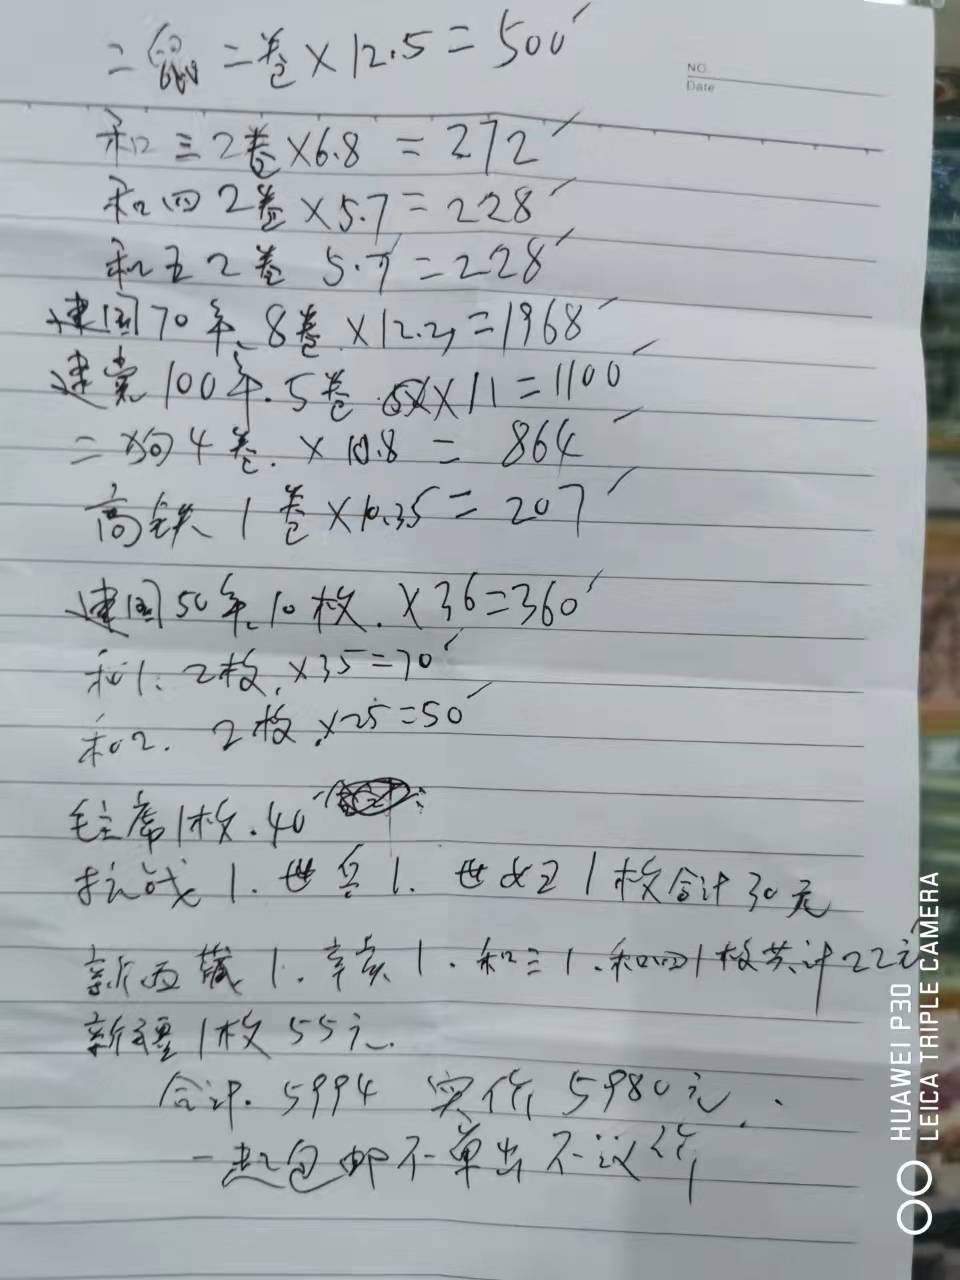 二鼠 二卷×12.5=500
NO.
Date
和三2卷×6.8=272
和四2卷×5.7=228
和五2卷 5.7=228
建国70年.8卷.×12.3=1968
建党100年.5卷 ×11=1100
二狗4卷.×10.8=864
高铁1卷×10.35=207
建国50年.10枚.×36=360
和1.2枚.×35=70
和2. 2枚.×25=50
毛主席1枚.40
抗战1.世兵1.世妇1枚合计30元
新西藏1.辛亥1.和三1.和四1枚共计22元
新疆1枚55元.
合计.5994 实价5980元.
一起包邮不单出不议价
HUAWEI P30
LEICA TRIPLE CAMERA